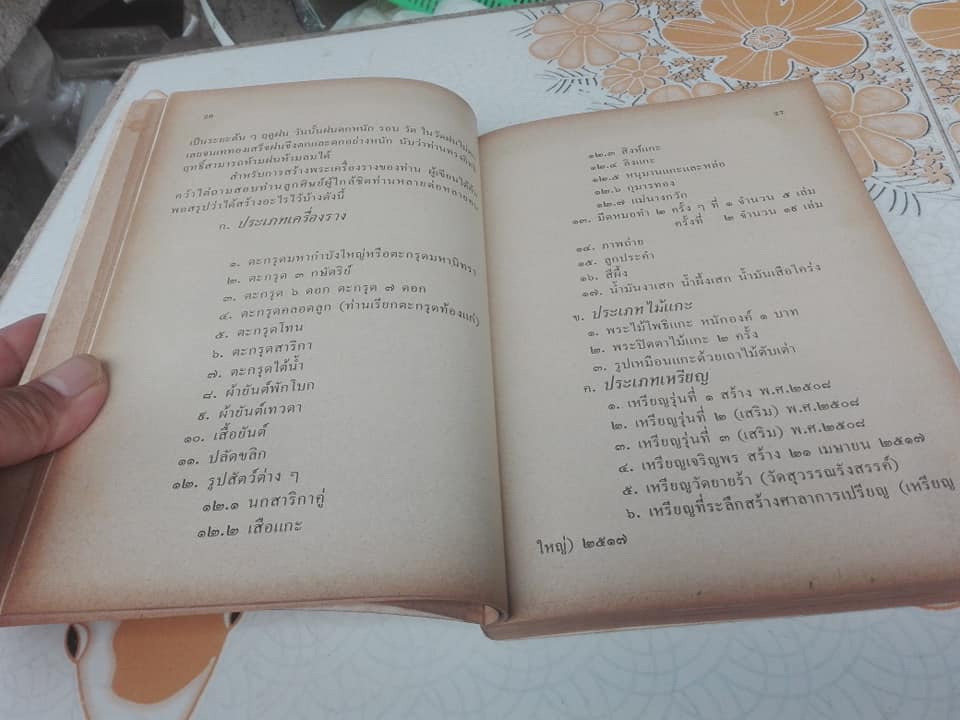 ๒๖
เป็นระยะต้น ๆ ฤดูฝน วันนั้นฝนตกหนัก รอบ วัด ในวัดฝนไม่ตก
เลยจนเททองเสร็จฝนจึงตกและตกอย่างหนัก นับว่าท่านทรง
ฤทธิ์สามารถห้ามฝนห้ามลมได้
สำหรับการสร้างพระเครื่องรางของท่าน ผู้เขียนได้
คว้าไต่ถามสอบท่านลูกศิษย์ผู้ใกล้ชิดท่านหลายต่อหลายคน
พอสรุปว่าได้สร้างอะไรไว้บ้างดังนี้
ก. ประเภทเครื่องราง
๑. ตะกรุดมหากำบังใหญ่หรือตะกรุดมหานิทรา
๒. ตะกรุด ๓ กษัตริย์
๓. ตะกรุด ๖ ดอก ตะกรุด ๗ ดอก
๔. ตะกรุดคลอดลูก (ท่านเรียกตะกรุดท้องแก่)
๕. ตะกรุดโทน
๖. ตะกรุดสาริกา
๗. ตะกรุดใต้น้ำ
๘. ผ้ายันต์พัดโบก
๙. ผ้ายันต์เทวดา
๑๐. เสื้อยันต์
๑๑. ปลัดขลิก
๑๒. รูปสัตว์ต่าง ๆ
๑๒.๑ นกสาริกาคู่
๑๒.๒ เสือแกะ
๒๗
๑๒.๓ สิงห์แกะ
๑๒.๔ ลิงแกะ
๑๒.๕ หนุมานแกะและหล่อ
๑๒.๖ กุมารทอง
๑๒.๗ แม่นางกวัก
๑๓. มีดหมอทำ ๒ ครั้ง ๆ ที่ ๑ จำนวน ๕ เล่ม
ครั้งที่ ๒ จำนวน ๑๙ เล่ม
๑๔. ภาพถ่าย
๑๕. ลูกประคำ
๑๖. สีผึ้ง
๑๗. น้ำมันงาเสก น้ำผึ้งเสก น้ำมันเสือโคร่ง
ข. ประเภทไม้แกะ
๑. พระไม้โพธิแกะ หนักองค์ ๑ บาท
๒. พระปิดตาไม้แกะ ๒ ครั้ง
๓. รูปเหมือนแกะด้วยเถาไม้ตับเต่า
ค. ประเภทเหรียญ
๑. เหรียญรุ่นที่ ๑ สร้าง พ.ศ.๒๕๐๘
๒. เหรียญรุ่นที่ ๒ (เสริม) พ.ศ.๒๕๐๘
๓. เหรียญรุ่นที่ ๓ (เสริม) พ.ศ.๒๕๐๘
๔. เหรียญเจริญพร สร้าง ๒๑ เมษายน ๒๕๑๗
๕. เหรียญวัดยายร้า (วัดสุวรรณรังสรรค์)
๖. เหรียญที่ระลึกสร้างศาลาการเปรียญ (เหรียญ
ใหญ่) ๒๕๑๗